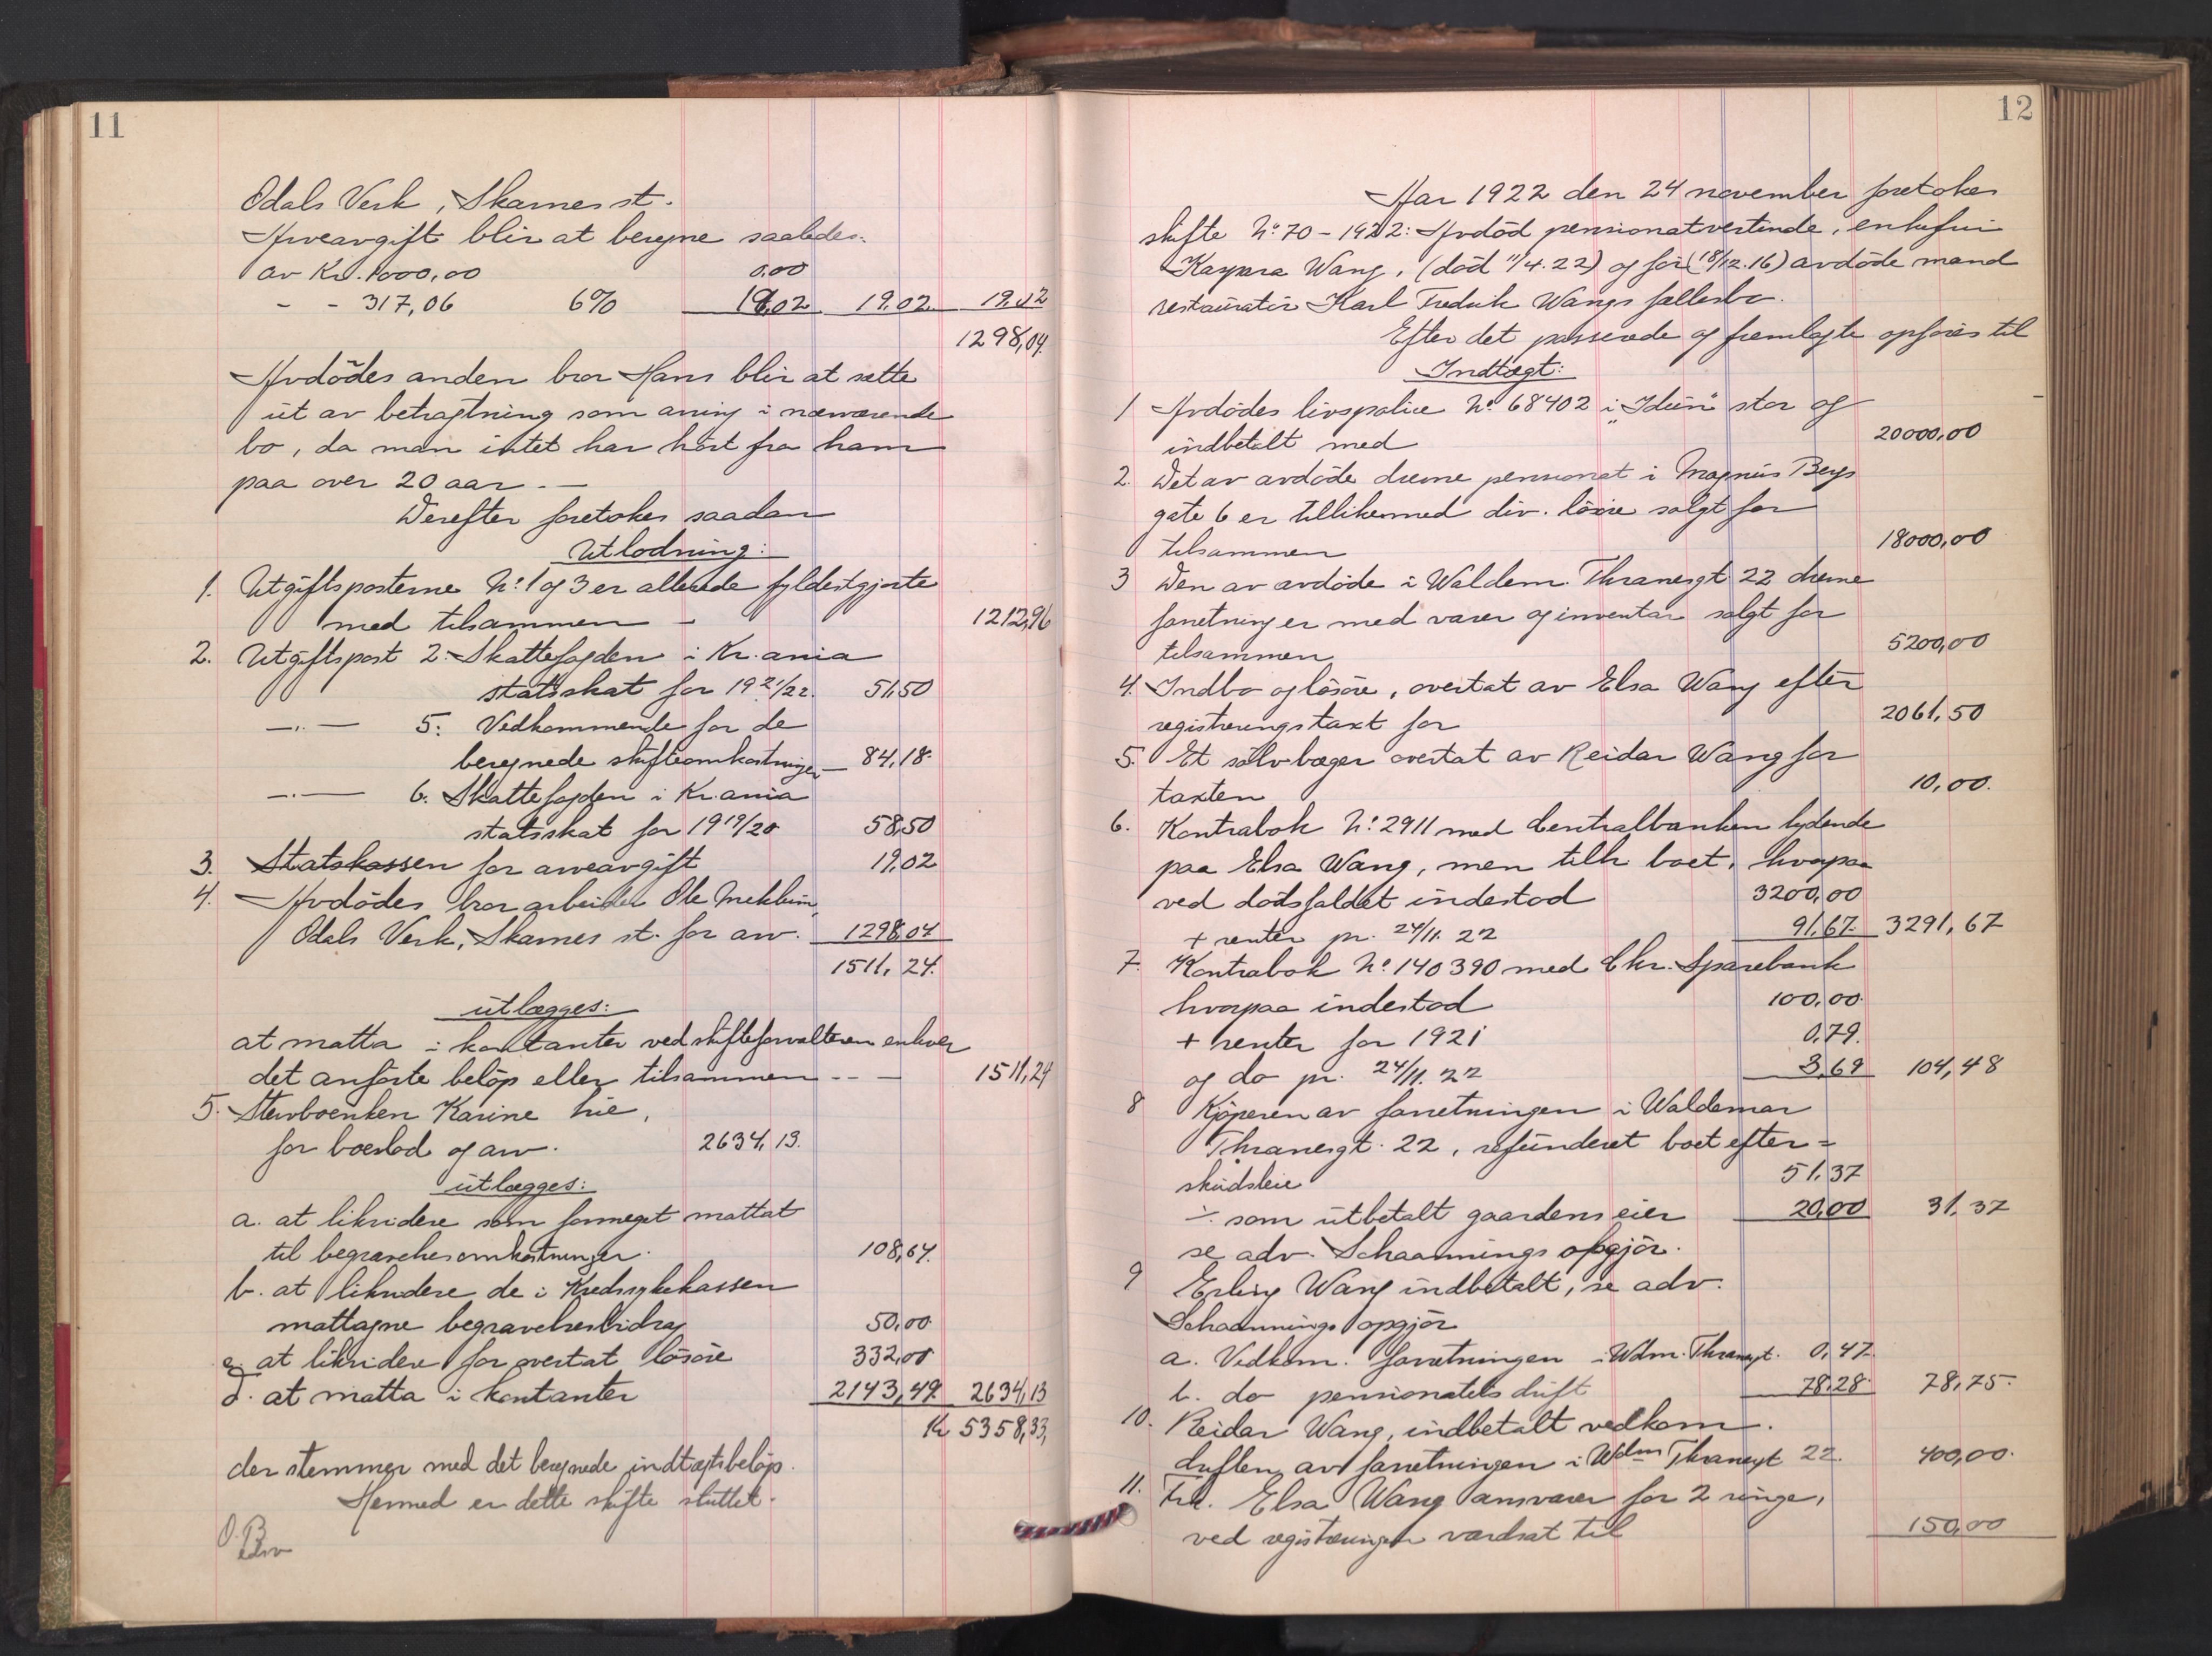 11
Odals Verk, Skarnes st.
Arveavgift blir at beregne saaledes:
av Kr. 1000,00 0,00
- - 317,06 6% 19,02 19,02 19,02
1298,04
Avdödes anden bror Hans blir at sætte
ut av betragtning som arving i nærværende
bo, da man intet har hört fra ham
paa over 20 aar. —
Derefter foretokes saadan
Utlodning:
1. Utgiftsposterne No. 1 og 3 er allerede fyldestgjorte
med tilsammen - 1212,96
2. Utgiftspost 2: Skattefogden i Kr.ania
statsskat for 19 21/22. 51,50
—.— 5: Vedkommende for de
beregnede skifteomkostninger — 84,18
—.— 6. Skattefogden i Kr.ania
statsskat for 19 19/20 58,50
3. Statskassen for arveavgift 19,02
4. Avdödes bror arbeider Ole
Odals Verk, Skarnes st. for arv. 1298,04
1511,24.
utlægges:
at motta i kontanter ved skifteforvalteren enhver
det anförte belöp eller tilsammen - - — 1511,24
5. Sterboenken Karine hie,
for boeslod og arv. 2634,13.
utlægges:
a. at likvidere som forneget mottat
til begravelsesomkostninger. 108,64.
b. at likvidere de i Kredssykekassen
mottagne begravelsesbidrag 50,00.
c. at likvidere for overtat lösöre 332,00
d. at motta i kontanter 2143,49 2634,13
Kr 5358,33,
der stemmer med det beregnede indtægtsbelöp.
Hermed er dette skifte sluttet.
12
Aar 1922 den 24 november foretokes
skifte No. 70 - 1922: Avdöd pensionatvertinde, enkefru
Kaspara Wang, (död 11/4.22) og för (18/12.16) avdöde mand
restauratör Karl Fredrik Wangs fællesbo.
Efter det passerede og fremlagte opföres til
Indtægt:
1 Avdödes livspolice No. 68402 i „Idun" stor og
indbetalt med 20000,00
2. Det av avdöde drevne pensionat i Magnus Bergs
gate 6 er tillikemed div. lösöre solgt for
tilsammen 18000,00
3 Den av avdöde i Waldem. Thranesgt 22 drevne
forretning er med varer og inventar solgt for
tilsammen 5200,00
4. Indbo og lösöre, overtat av Elsa Wang efter
registreringstaxt for 2061,50
5. Et sölvbæger overtat av Reidar Wang for
taxten 10,00.
6. Kontrabok No. 2911 med Centralbanken lydende
paa Elsa Wang, men tilh. boet, hvorpaa
ved dödsfaldet indestod 3200,00
+ renter pr. 24/11. 22 91,67. 3291,67
7. Kontrabok No. 140390 med Chr. Sparebank
hvorpaa indestod 100,00.
+ renter for 1921 0,79.
og do pr. 24/11. 22 3,69 104,48
8 Kjöperen av forretningen i Waldemar
Thranesgt. 22, refunderet boet efter=
skudsleie 51,37
÷ som utbetalt gaardens eier 20,00 31,37
se adv. Schaannings opgjör.
9 Erling Wang indbetalt, se adv.
Schaannings opgjör
a. Vedkom. forretningen i Wdm. Thranesgt. 0,47.
b. do pensionatets drift 78,28. 78,75.
10. Reidar Wang, indbetalt vedkom.
driften av forretningen i Wdm Thranesgt 22. 400,00.
11. Frk. Elsa Wang ansvarer for 2 ringe,
ved registreringen værdsat til 150,00